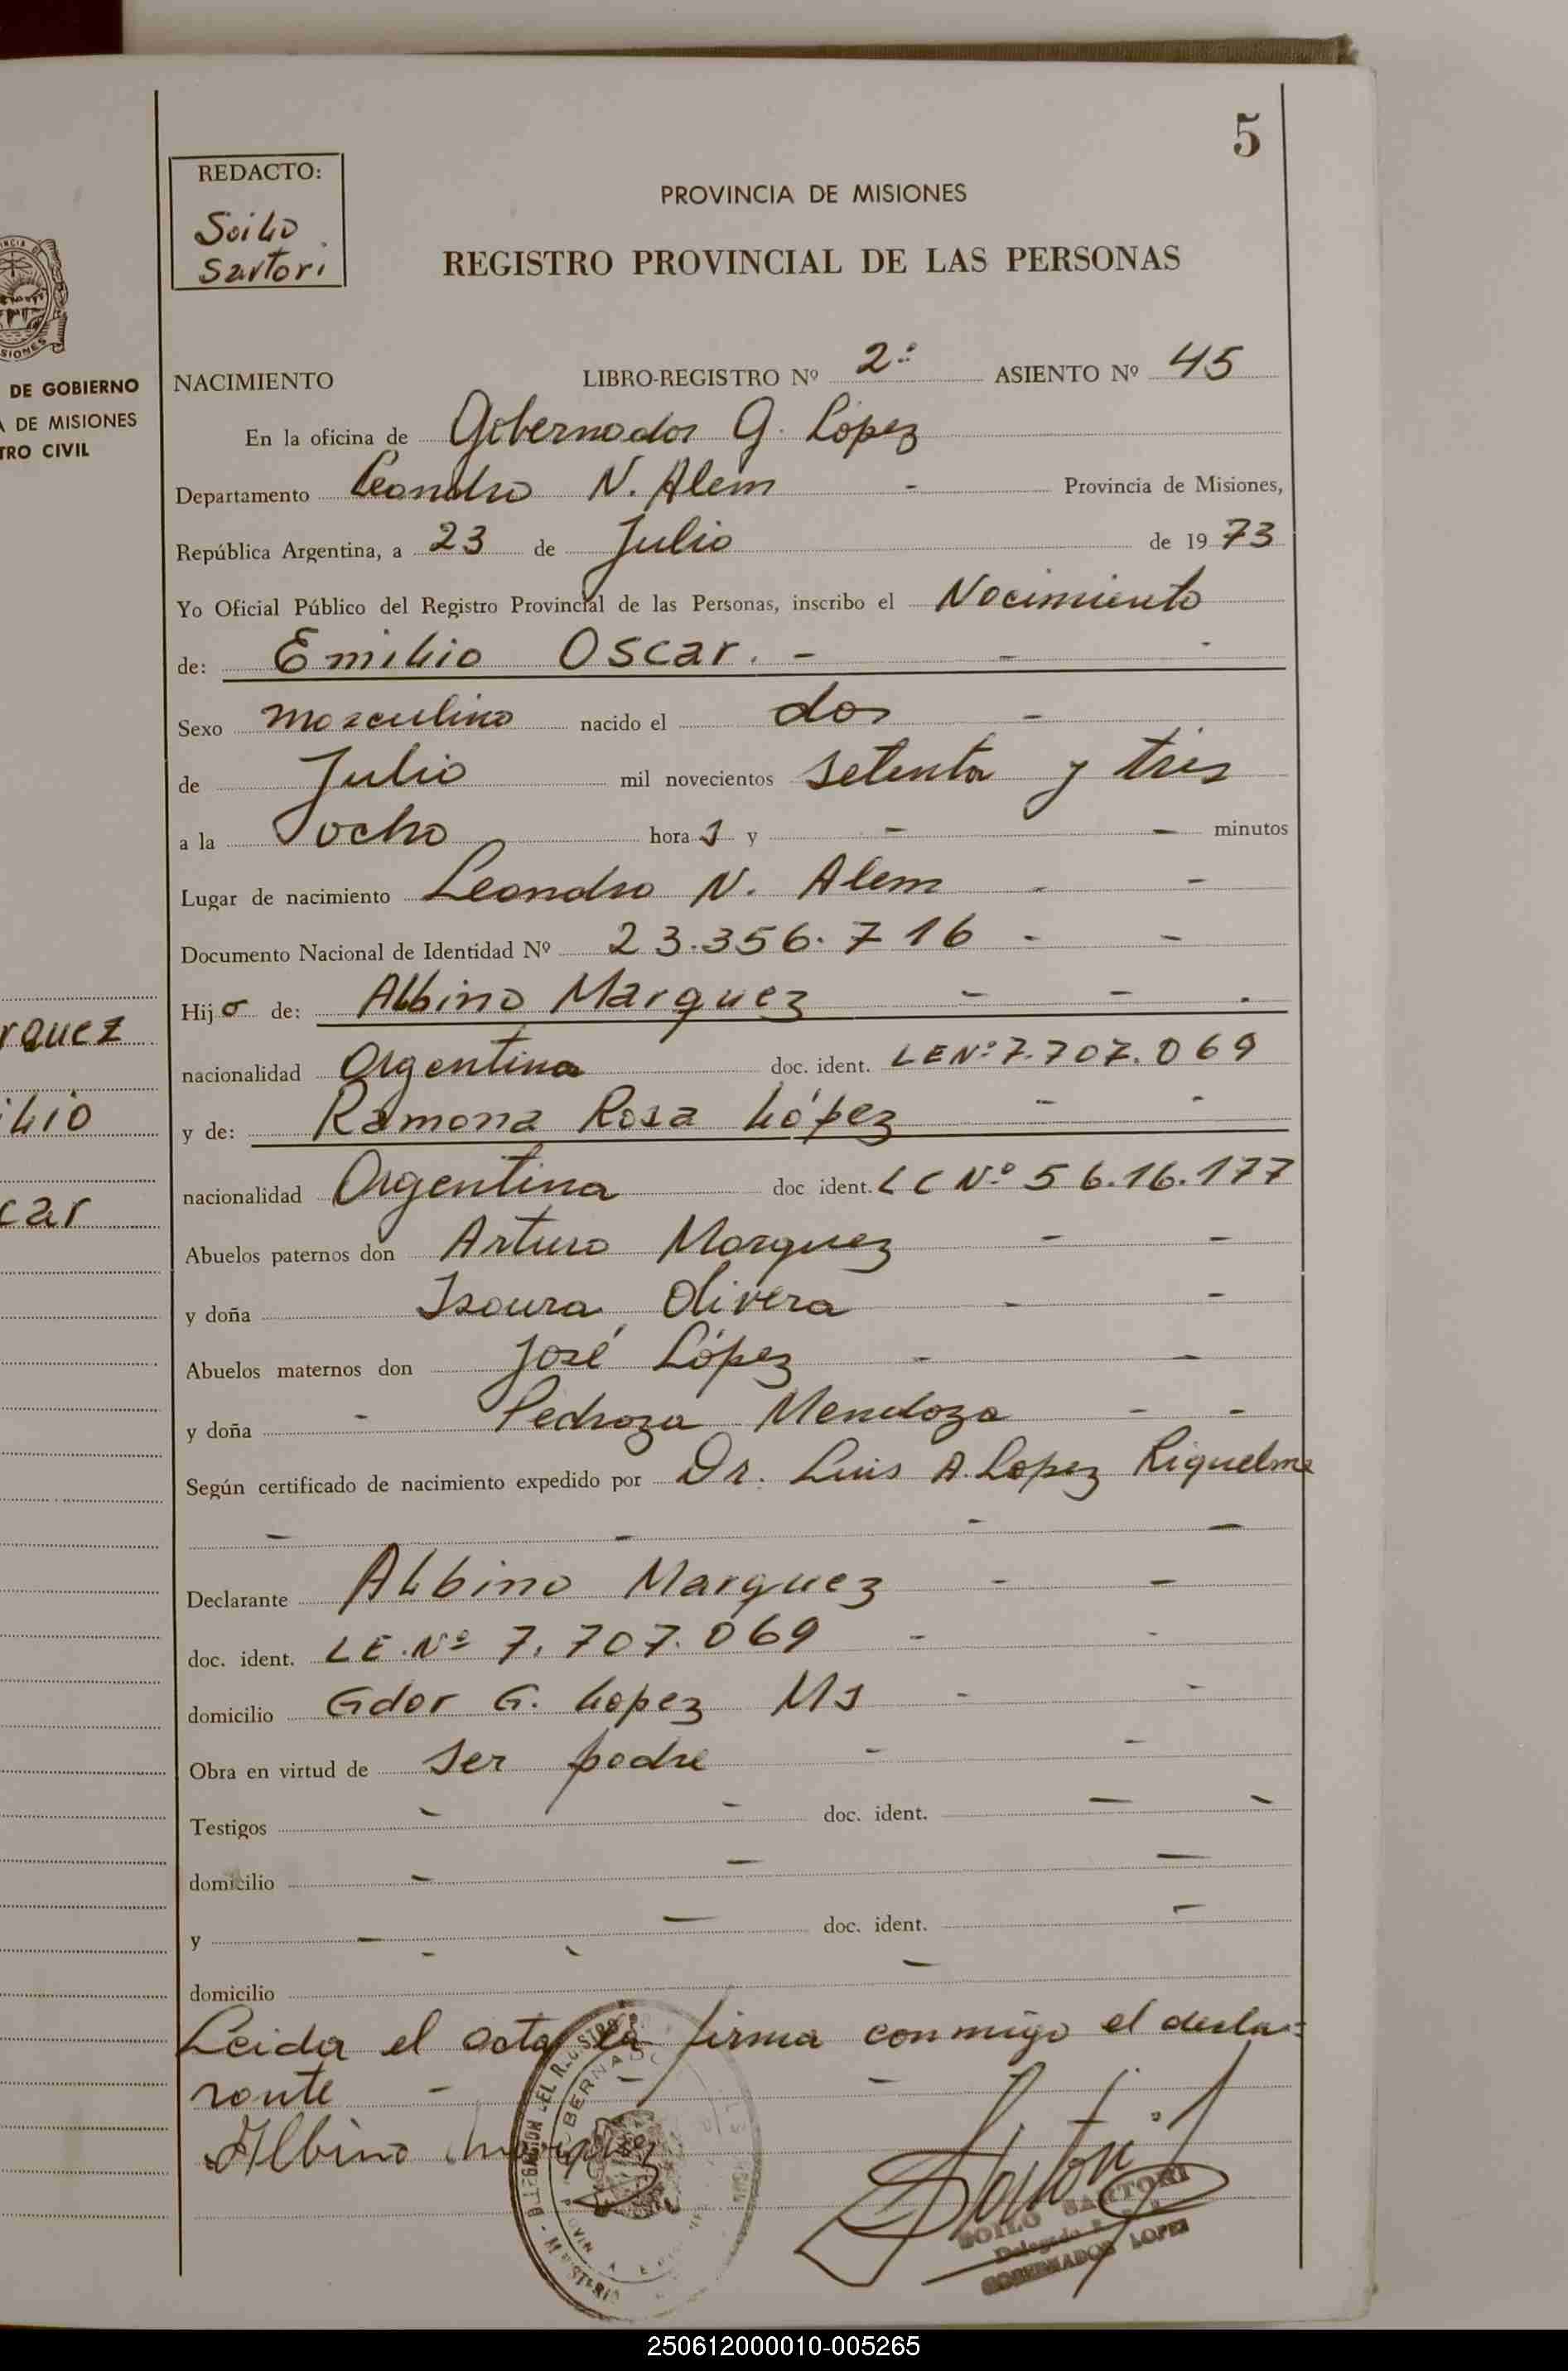 5
REDACTO:
Soilo
Sartori
PROVINCIA DE MISIONES
REGISTRO PROVINCIAL DE LAS PERSONAS
SIONES
DE GOBIERNO
A DE MISIONES
TRO CIVIL
rquez
ilio
car
NACIMIENTO LIBRO-REGISTRO Nº 2º ASIENTO Nº 45
En la oficina de Gobernador G. López
Departamento Leandro N. Alem - Provincia de Misiones,
República Argentina, a 23 de Julio de 1973
Yo Oficial Público del Registro Provincial de las Personas, inscribo el Nacimiento
de: Emilio Oscar. - - -
Sexo masculino nacido el dos -
de Julio mil novecientos setenta y tres
a la ocho hora s y - - minutos
Lugar de nacimiento Leandro N. Alem - -
Documento Nacional de Identidad Nº 23.356.716 - -
Hijo de: Albino Marquez - - .
nacionalidad Argentina doc. ident. LE Nº 7.707.069
y de: Ramona Rosa López - -
nacionalidad Argentina doc ident. LC Nº 56.16.177
Abuelos paternos don Arturo Marquez - -
y doña Isaura Olivera - -
Abuelos maternos don José López - -
y doña - Pedroza Mendoza - -
Según certificado de nacimiento expedido por Dr. Luis A. Lopez Riquelme
- - - -
Declarante Albino Marquez - -
doc. ident. LE. Nº 7.707.069 - -
domicilio Gdor G. Lopez Ms - -
Obra en virtud de ser padre - -
Testigos - - doc. ident. - -
domicilio - - -
y - - doc. ident. -
domicilio - - -
Leida el acta la firma conmigo el decla=
rante - - -
Albino Marquez
Sartori
SOILO SARTORI
Delegado
GOBERNADOR LOPEZ
250612000010-005265